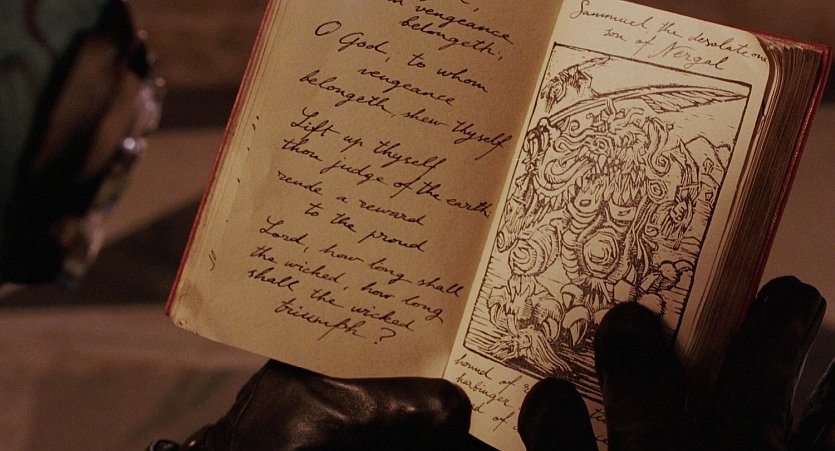 vengeance
belongeth,
O God, to whom
vengeance
belongeth, shew thyself
Lift up thyself
thou judge of the earth
rende a reward
to the proud
Lord, how long shall
the wicked, how long
shall the wicked
triumph?
Sammael the desolate one
son of Nergal
hound of
harbinger
of